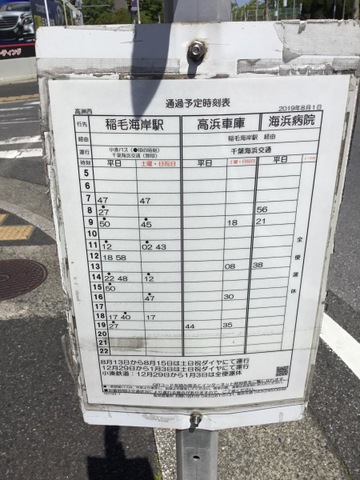 高洲西
通過予定時刻表
2019年8月1日
行先 稲毛海岸駅 高浜車庫 海浜病院
経由 稲毛海岸駅 経由
運行 小湊バス(●印の時刻) 千葉海浜交通(無印) 千葉海浜交通
時刻 平日 土曜・日祝日 平日 土曜・日祝日 平日
5
6
7 47 47
8 ●27 56
9 ●50 ●45 18 21
10
11 ●12 ●02 43
12 18 58
13 08 38
14 ●22 ●48 ●12
15 ●50
16 ●47 30
17
18 17 ●40 ●17
19 ●27 44 35
20
21
22
全便運休
8月13日から8月15日は土日祝ダイヤにて運行
12月29日から1月3日は土日祝ダイヤにて運行
小湊鉄道:12月29日から1月3日は全便運休